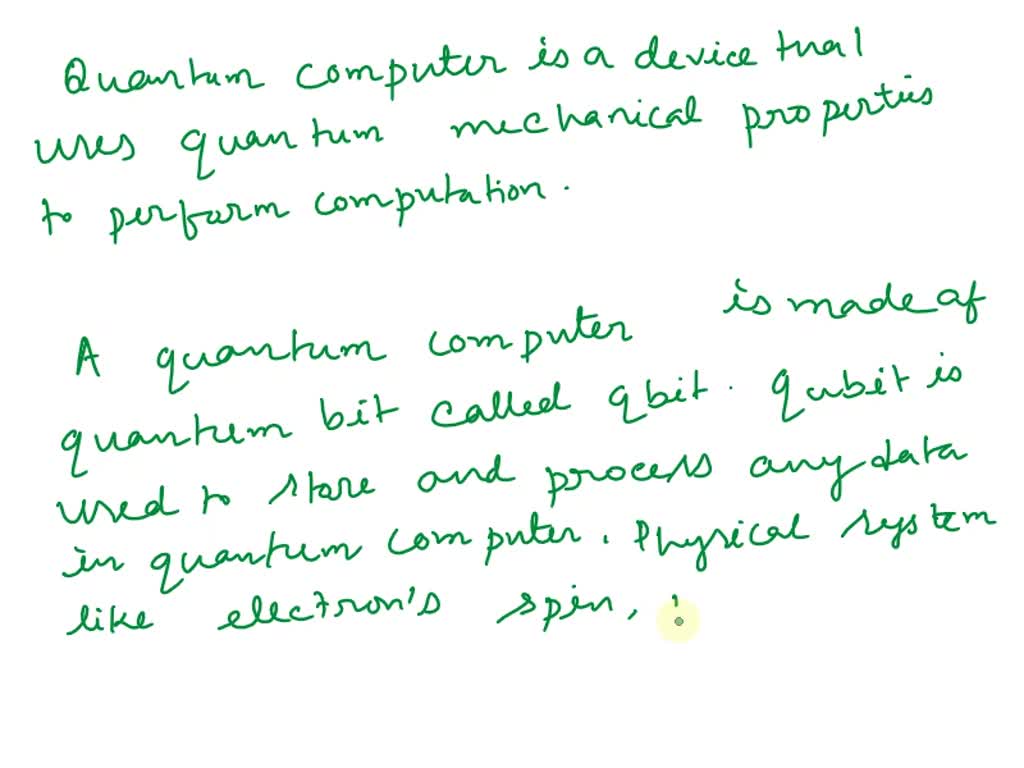 Quantum computer is a device that
uses quantum mechanical properties
to perform computation.
A quantum computer is made of
quantum bit called qbit. Qubit is
used to store and process any data
in quantum computer. Physical system
like electron's spin,